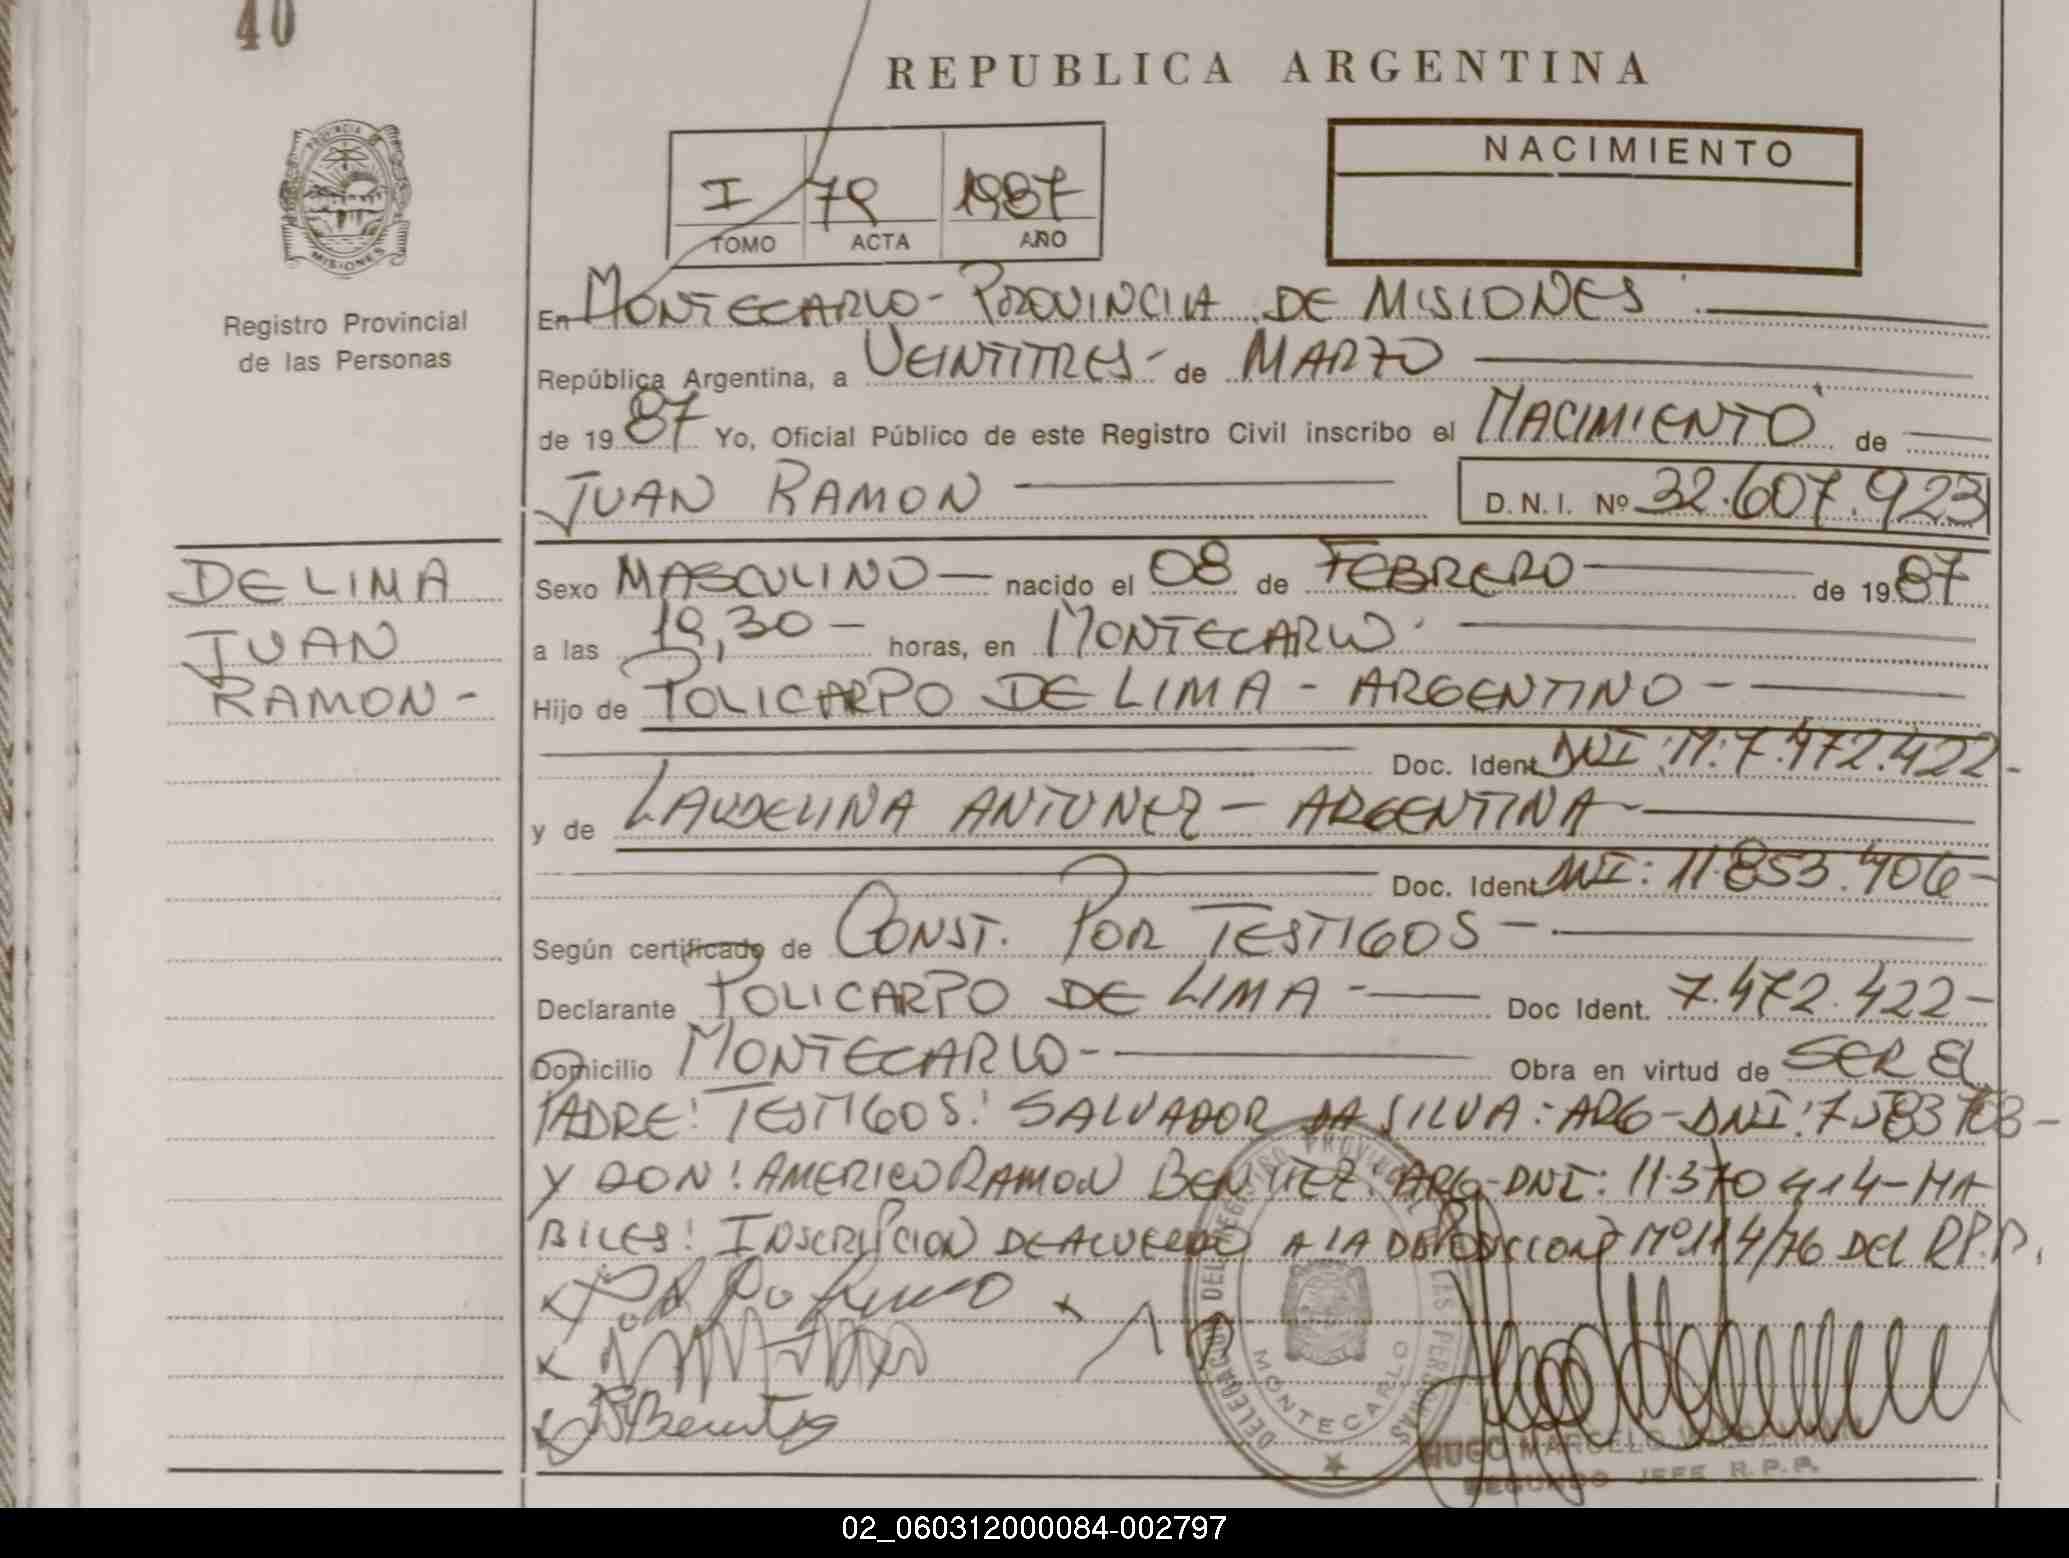 40
REPUBLICA ARGENTINA
NACIMIENTO
PROVINCIA DE
MISIONES
I 79 1987
TOMO ACTA AÑO
Registro Provincial
de las Personas
En MONTECARLO - PROVINCIA DE MISIONES
República Argentina, a VEINTITRES - de MARZO
de 1987 Yo, Oficial Público de este Registro Civil inscribo el NACIMIENTO de
JUAN RAMON
D. N. I. Nº 32.607.923
DE LIMA
JUAN
RAMON -
Sexo MASCULINO nacido el 08 de FEBRERO de 1987
a las 19,30 - horas, en MONTECARLO
Hijo de POLICARPO DE LIMA - ARGENTINO -
Doc. Ident DNI: M: 7.472.422 -
y de LAUDELINA ANTUNEZ - ARGENTINA -
Doc. Ident DNI: 11.853.406 -
Según certificado de CONST. POR TESTIGOS -
Declarante POLICARPO DE LIMA - Doc Ident. 7.472.422 -
Domicilio MONTECARLO - Obra en virtud de SER EL
PADRE: TESTIGOS: SALVADOR DA SILVA: ARG - DNI:
Y DON: AMERICO RAMON BENITEZ ARG - DNI: 11.370 414 - HA
BILES: INSCRIPCION DE ACUERDO A LA DISPOSICION Nº 114/76 DEL R.P.P.
DELEGACION DEL REGISTRO PROVINCIAL DE LAS PERSONAS
MONTECARLO
HUGO MARCELO
SEGUNDO JEFE R.P.P.
02_060312000084-002797